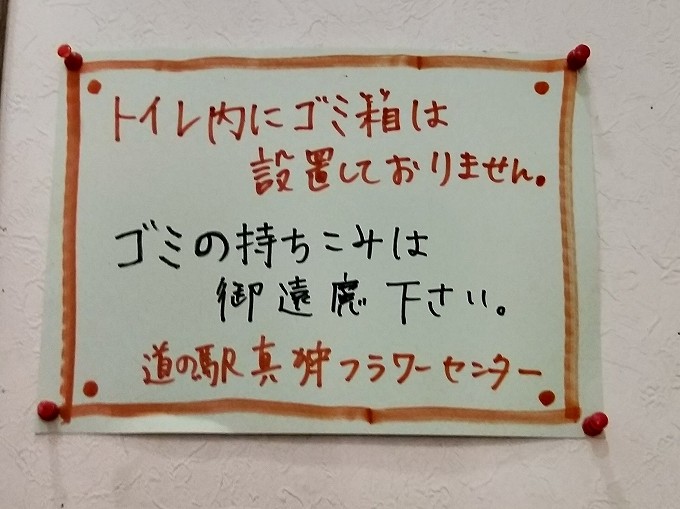 トイレ内にゴミ箱は
設置しておりません。
ゴミの持ちこみは
御遠慮下さい。
道の駅真狩フラワーセンター